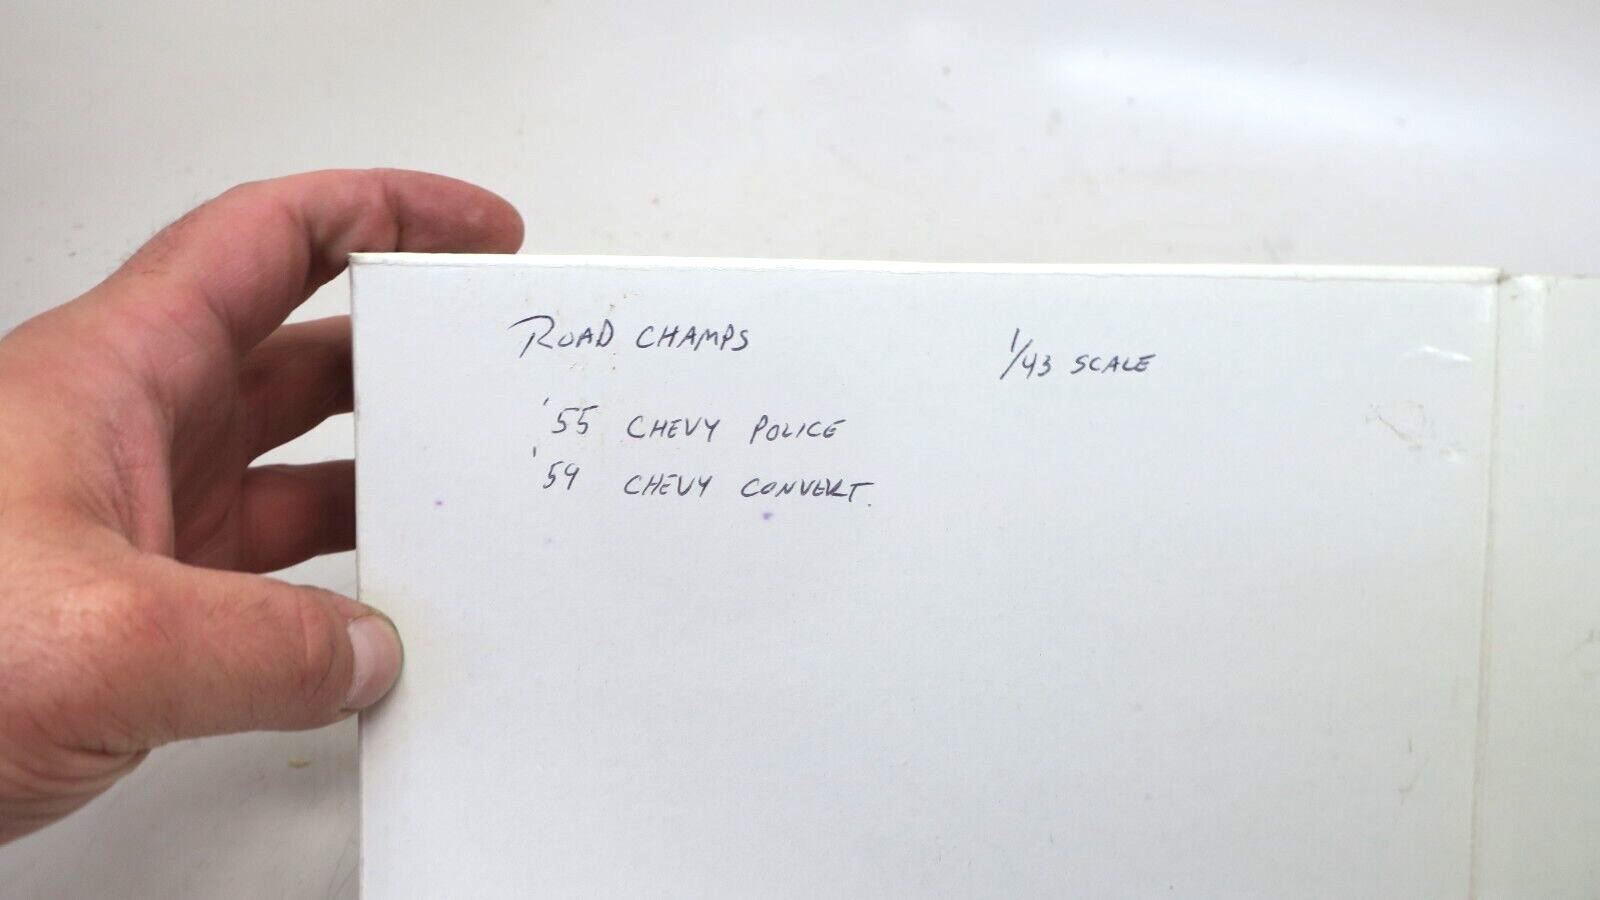 ROAD CHAMPS
1/43 SCALE
'55 CHEVY POLICE
'59 CHEVY CONVERT.